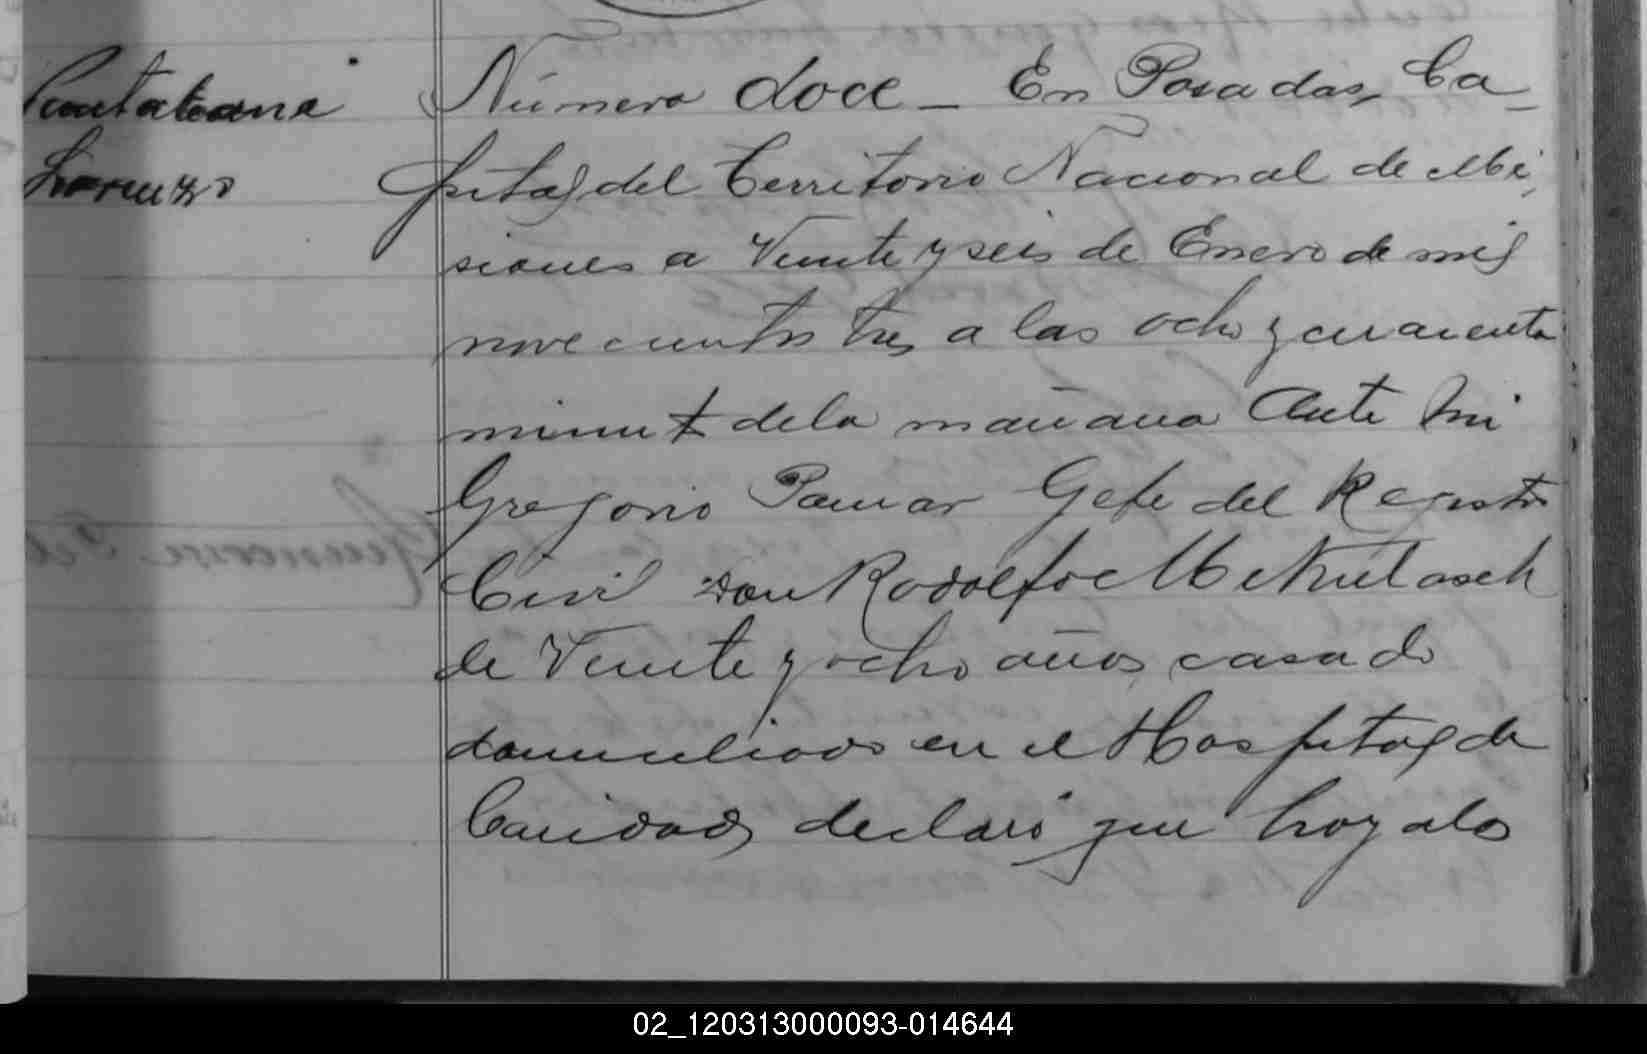 Lorenzo
Número doce _ En Posadas, Ca_
pital del Territorio Nacional de Mi_
siones a Veinte y seis de Enero de mil
novecientos tres a las ocho y cuarenta
minut de la mañana Ante Mi
Gregorio Pomar Gefe del Registro
Civil Don Rodolfo
de Veinte y ocho años, casado
domiciliado en el Hospital de
Caridad, declaró que hoy a las
02_120313000093-014644